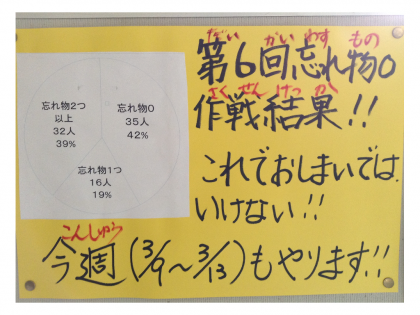 だい かい わす もの
第6回忘れ物0
さく せん けっ か
作戦結果!!
忘れ物2つ
以上
32人
39%
忘れ物0
35人
42%
忘れ物1つ
16人
19%
これでおしまいでは
いけない!!
こんしゅう
今週(3/9〜3/13)もやります!!